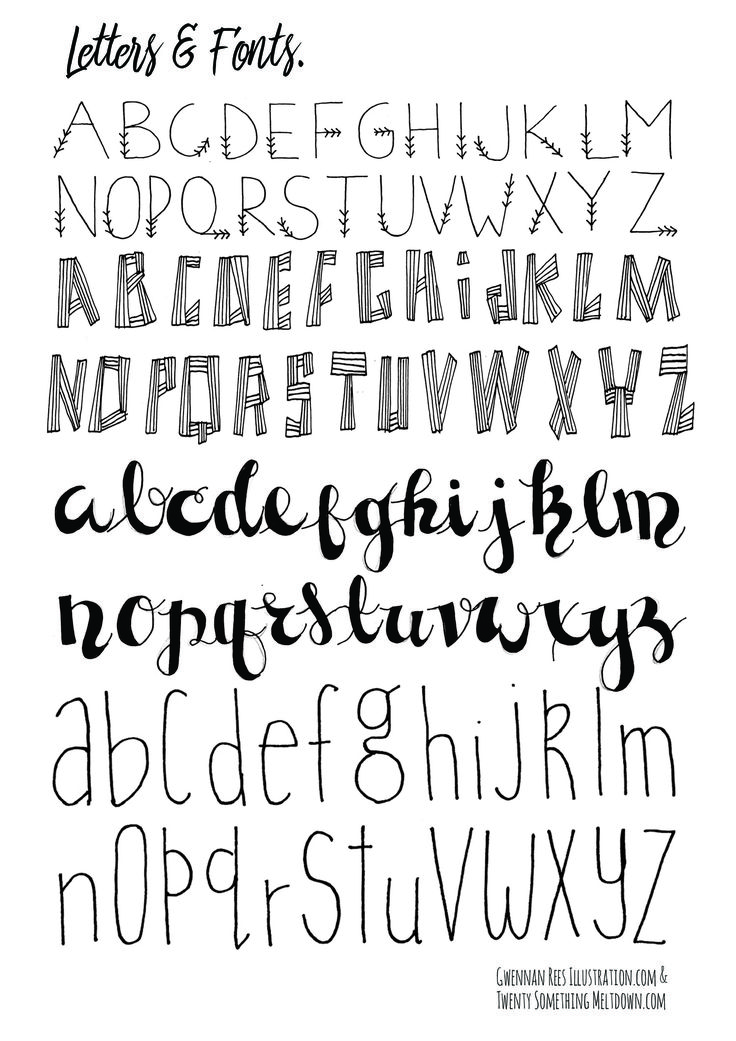 Letters & Fonts.
ABCDEFGHIJKLM
NOPQRSTUVWXYZ
ABCDEFGHiJKLM
NOPQRSTUVWXYZ
abcdefghijklm
nopqrstuvwxyz
abcdefghijklm
nopqrstuvwxyz
Gwennan Rees Illustration.com &
Twenty Something Meltdown.com